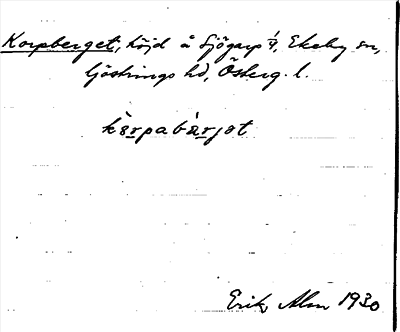 Korpberget, höjd å Sjögarp 1/4, Ekeby sn,
Göstrings hd, Österg. l.
kårpabärjet
Erik Alm 1930